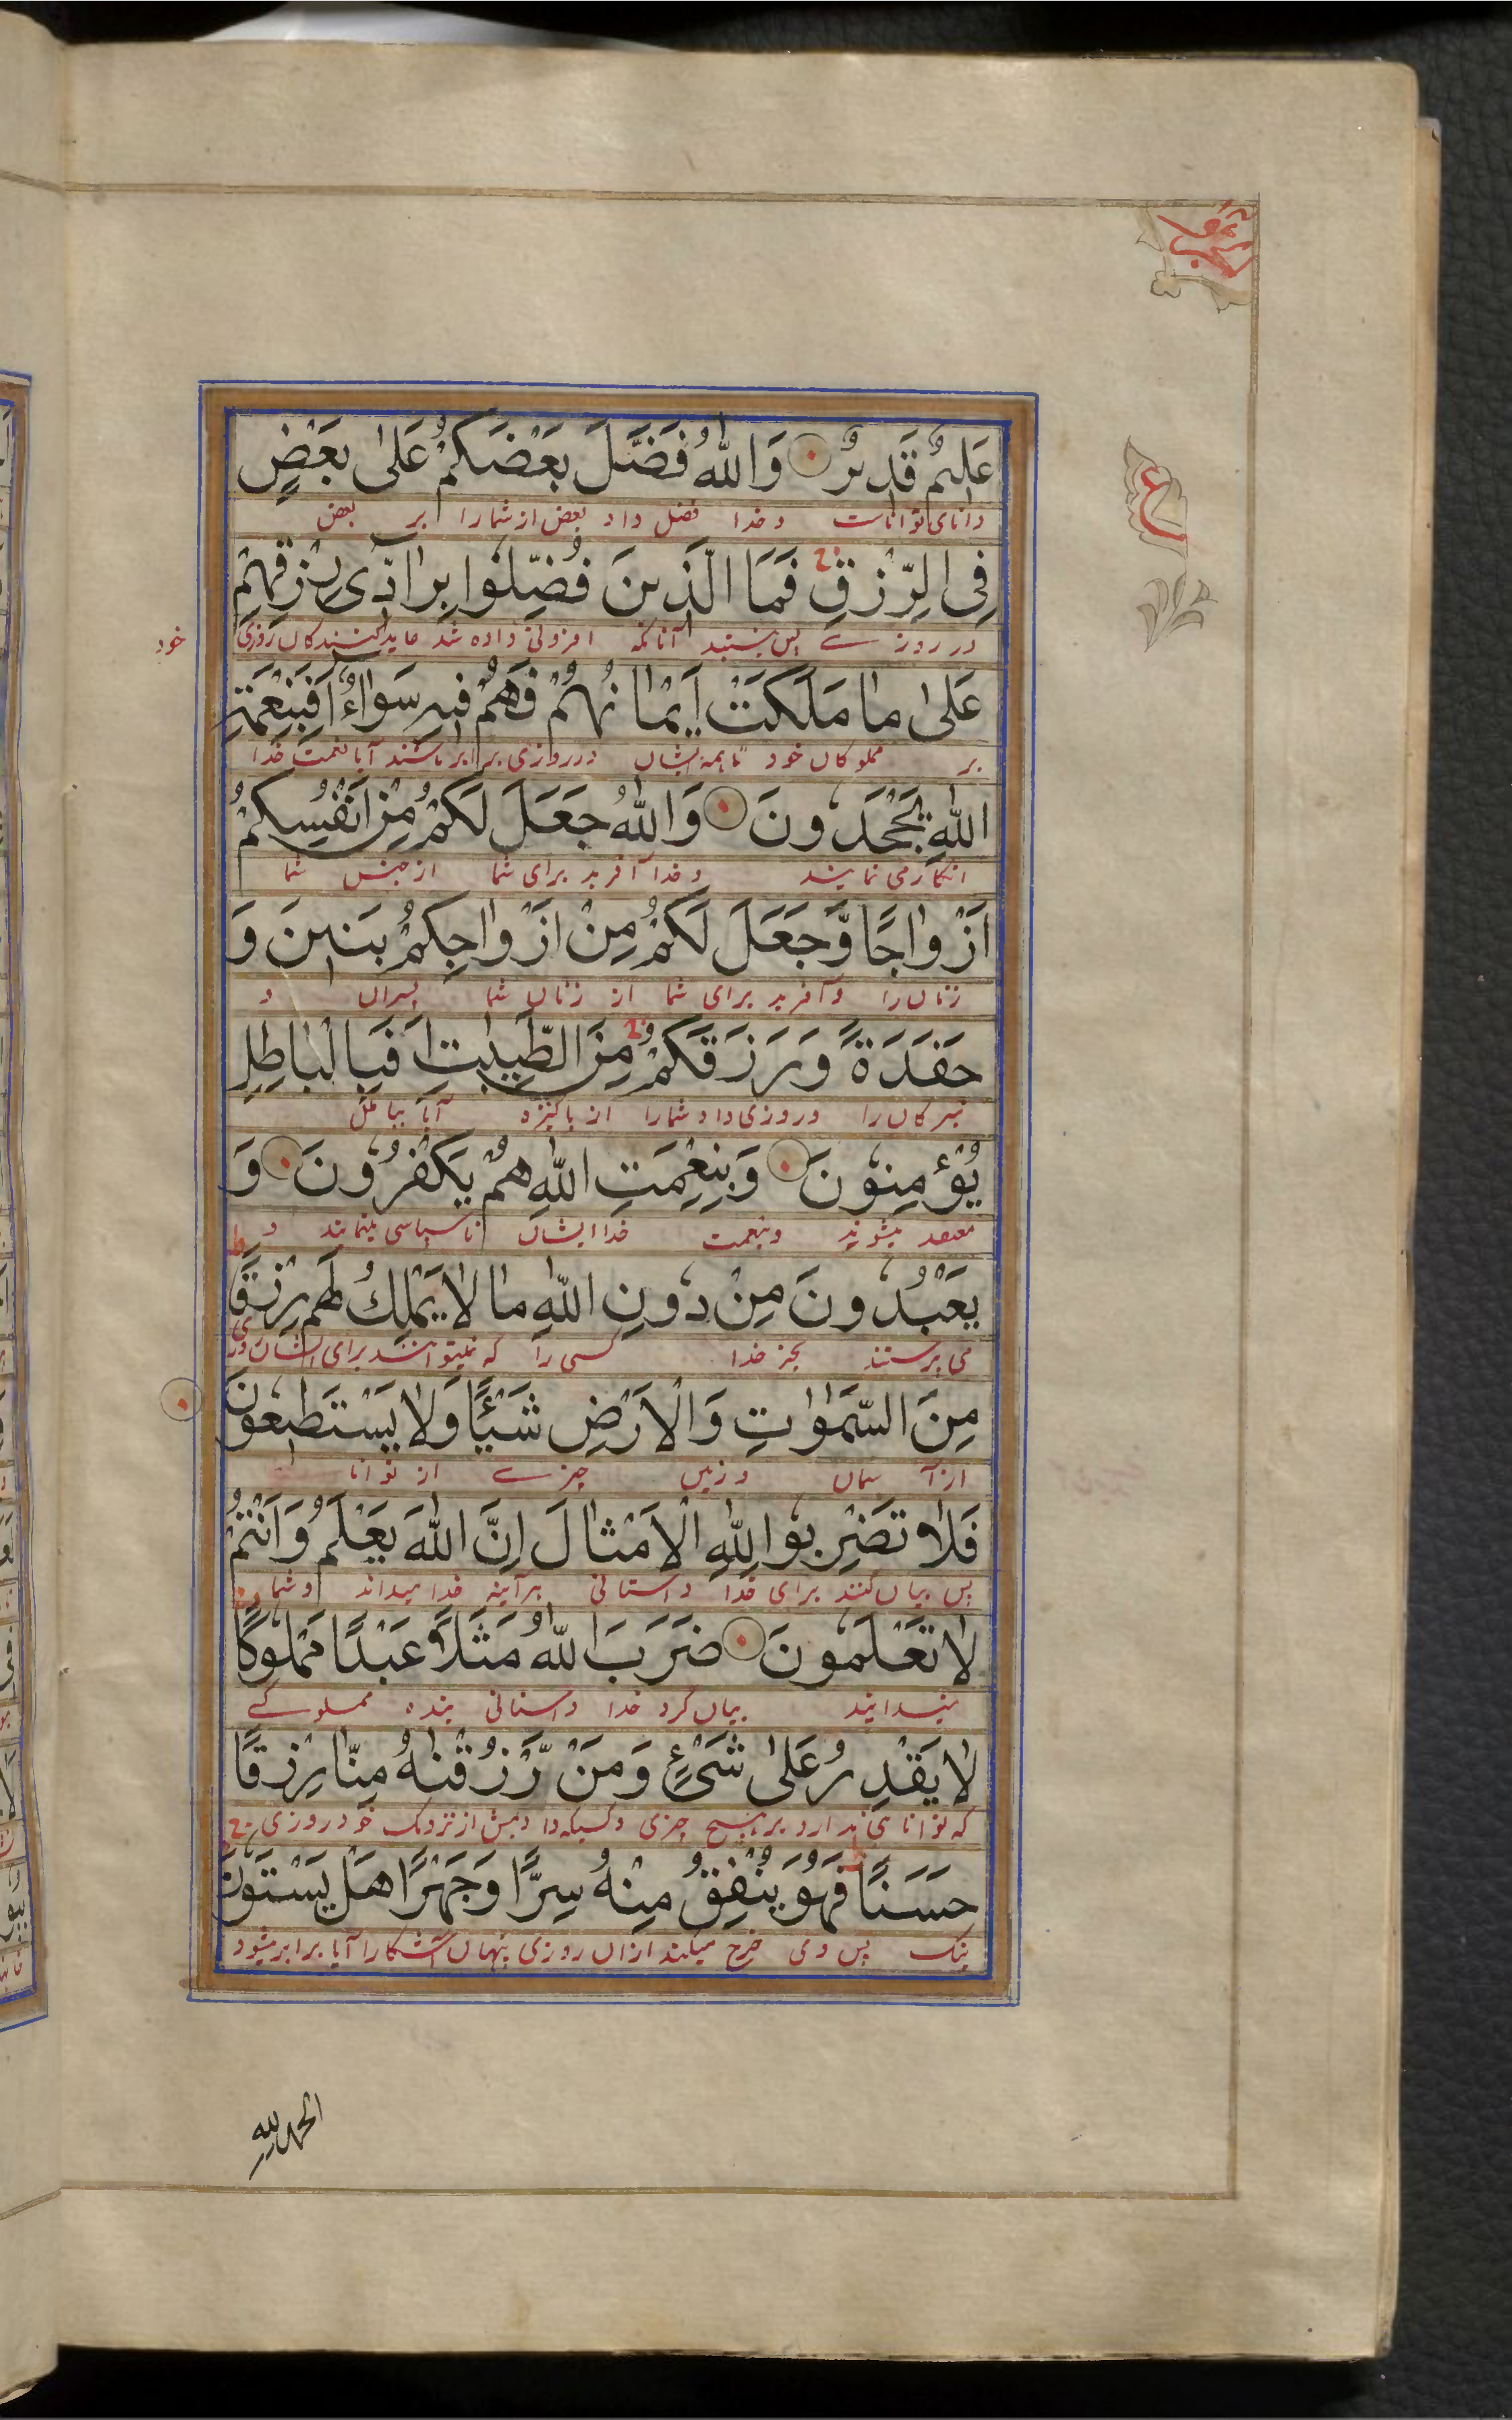 عَلِيمٌ قَدِيرٌ وَاللّٰهُ فَضَّلَ بَعْضَكُمْ عَلٰى بَعْضٍ
دانای تواناست و خدا فضل داد بعض از شما را بر بعض
فِي الرِّزْقِ فَمَا الَّذِينَ فُضِّلُوا بِرَادِّي رِزْقِهِمْ
در روزے پس نیستند آنانکه افزونی داده شد عاید کنندکان روزی خود
عَلٰى مَا مَلَكَتْ أَيْمَانُهُمْ فَهُمْ فِيهِ سَوَاءٌ أَفَبِنِعْمَةِ
بر مملوکان خود تا همه ایشان در روزی برابر باشند آیا بنعمت خدا
اللّٰهِ يَجْحَدُونَ وَاللّٰهُ جَعَلَ لَكُمْ مِنْ أَنْفُسِكُمْ
انکار می نمایند و خدا آفرید برای شما از جنس شما
أَزْوَاجًا وَّجَعَلَ لَكُمْ مِنْ أَزْوَاجِكُمْ بَنِينَ وَ
زنان را و آفرید برای شما از زنان شما پسران و
حَفَدَةً وَرَزَقَكُمْ مِنَ الطَّيِّبٰتِ أَفَبِالْبَاطِلِ
نبیرکان را و روزی داد شما را از پاکیزه آیا بباطل
يُؤْمِنُونَ وَبِنِعْمَتِ اللّٰهِ هُمْ يَكْفُرُونَ وَ
معتقد میشوند و بنعمت خدا ایشان ناسپاسی مینمایند و
يَعْبُدُونَ مِنْ دُونِ اللّٰهِ مَا لَا يَمْلِكُ لَهُمْ رِزْقًا
می پرستند بجز خدا کسی را که نمیتوانند برای ایشان
مِنَ السَّمٰوٰتِ وَالْأَرْضِ شَيْئًا وَلَا يَسْتَطِيعُونَ
از آسمان و زمین چیزے از توانا
فَلَا تَضْرِبُوا لِلّٰهِ الْأَمْثَالَ إِنَّ اللّٰهَ يَعْلَمُ وَأَنْتُمْ
پس بیان کنند برای خدا داستانی هرآینه خدا میداند و شما
لَا تَعْلَمُونَ ضَرَبَ اللّٰهُ مَثَلًا عَبْدًا مَمْلُوكًا
نمیدانید بیان کرد خدا داستانی بنده مملوکے
لَا يَقْدِرُ عَلٰى شَيْءٍ وَمَنْ رَّزَقْنٰهُ مِنَّا رِزْقًا
که توانای ندارد بر هیچ چیزی و کسیکه دادیمش از نزدیک خود روزی
حَسَنًا فَهُوَ يُنْفِقُ مِنْهُ سِرًّا وَجَهْرًا هَلْ يَسْتَوُنَ
نیک پس وی خرج میکند ازان روزی پنهان آشکارا آیا برابر میشود
الحمد لله